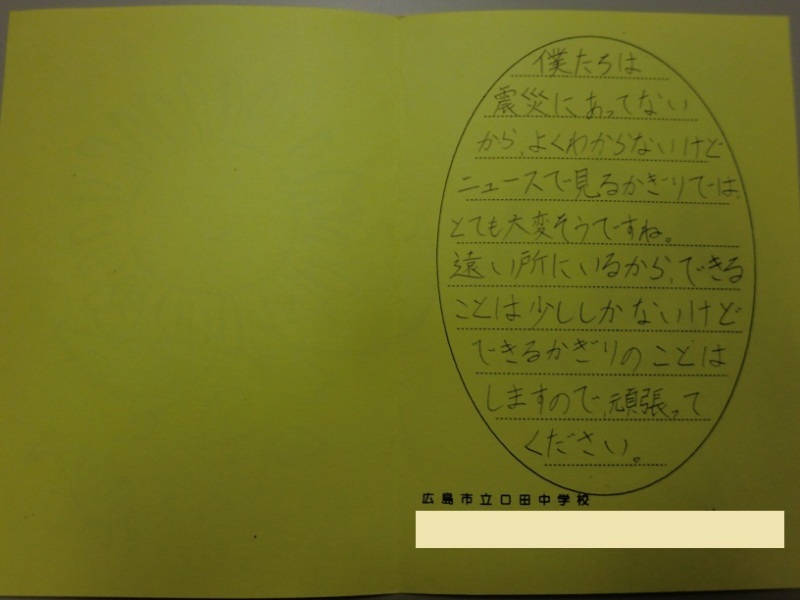 僕たちは
震災にあってない
から、よくわからないけど
ニュースで見るかぎりでは、
とても大変そうですね。
遠い所にいるから、できる
ことは少ししかないけど
できるかぎりのことは
しますので、頑張って
ください。
広島市立口田中学校